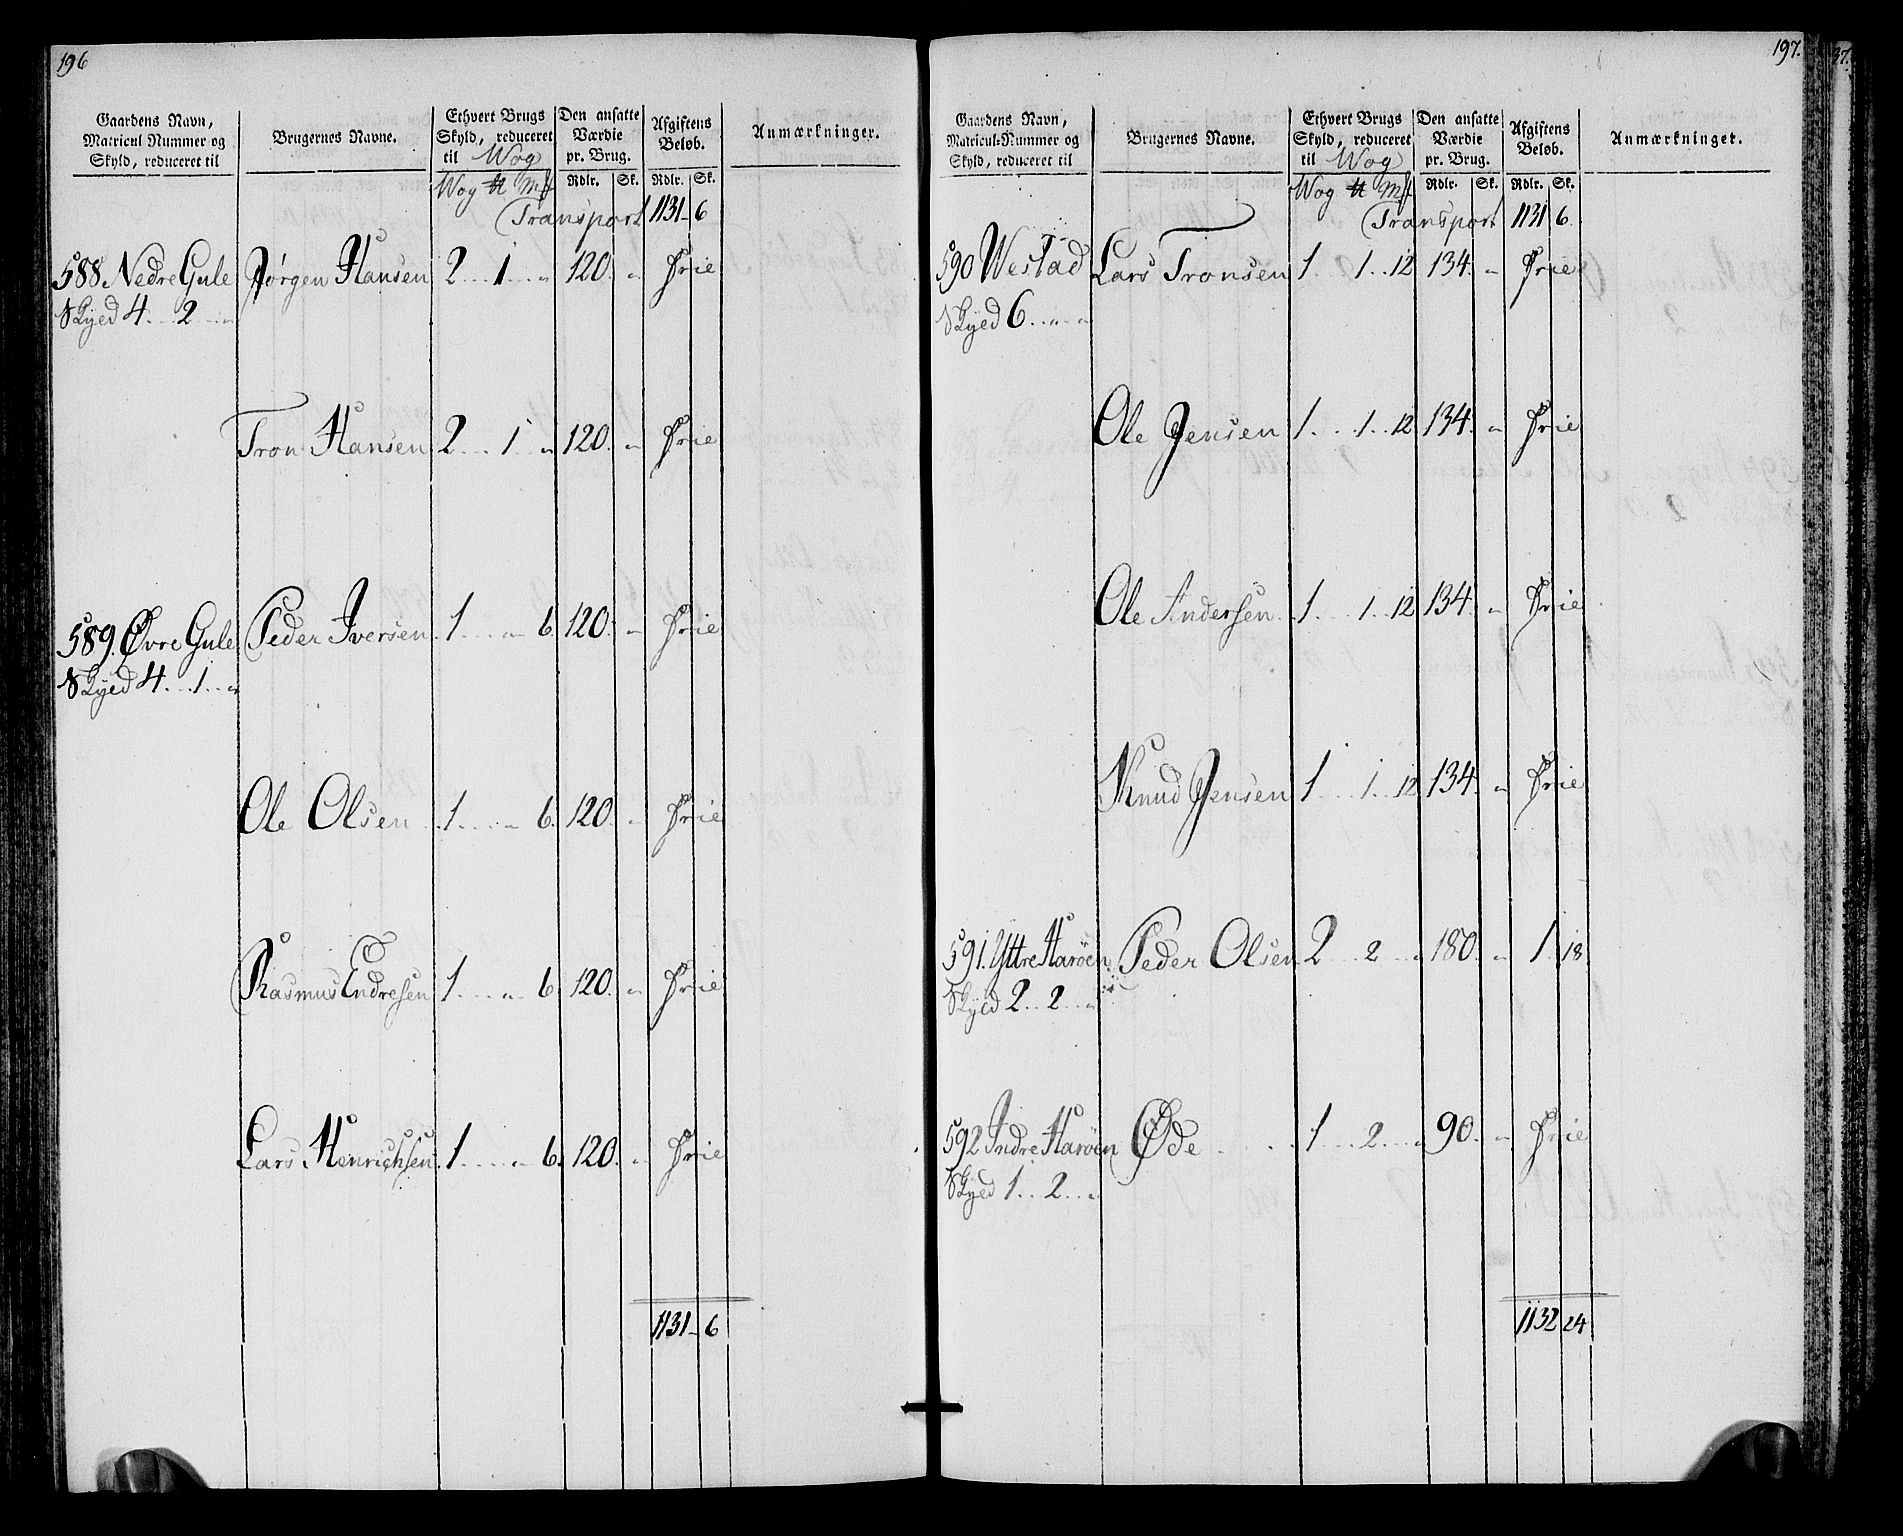 196
Gaardens Navn, Matricul Nummer og Skyld, reduceret til
Brugernes Navne.
Ethvert Brugs Skyld, reduceret til Wog
Den ansatte Værdie pr. Brug.
Afgiftens Beløb.
Anmærkninger.
Wog ℔ Mk Rdlr. Sk. Rdlr. Sk.
Transport 1131 6
588. Nedre Gule Jørgen Hansen 2 1 " 120 " Frie
Skyed 4 2 "
Tron Hansen 2 1 " 120 " Frie
589. Øvre Gule Peder Iversen 1 " 6 120 " Frie
Skyed 4 1 "
Ole Olsen 1 " 6 120 " Frie
Rasmus Endresen 1 " 6 120 " Frie
Lars Henrichsen 1 " 6 120 " Frie
1131 6
197.
Gaardens Navn, Matricul-Nummer og Skyld, reduceret til
Brugernes Navne.
Ethvert Brugs Skyld, reduceret til Wog
Den ansatte Værdie pr. Brug.
Afgiftens Beløb.
Anmærkninger.
Wog ℔ Mk Rdlr. Sk. Rdlr. Sk.
Transport 1131 6
590 Westad Lars Tronsen 1 1 12 134 " Frie
Skyed 6 " "
Ole Jensen 1 1 12 134 " Frie
Ole Andersen 1 1 12 134 " Frie
Knud Jensen 1 1 12 134 " Frie
591. Yttre Harøen Peder Olsen 2 2 " 180 " 1 18
Skyed 2 2 "
592 Indre Harøen Øde 1 2 " 90 " Frie
Skyed 1 2 "
1132 24